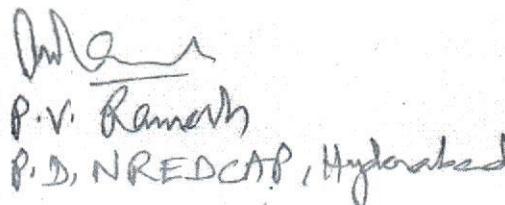 P.V. Ramesh
P.D, NREDCAP, Hyderabad